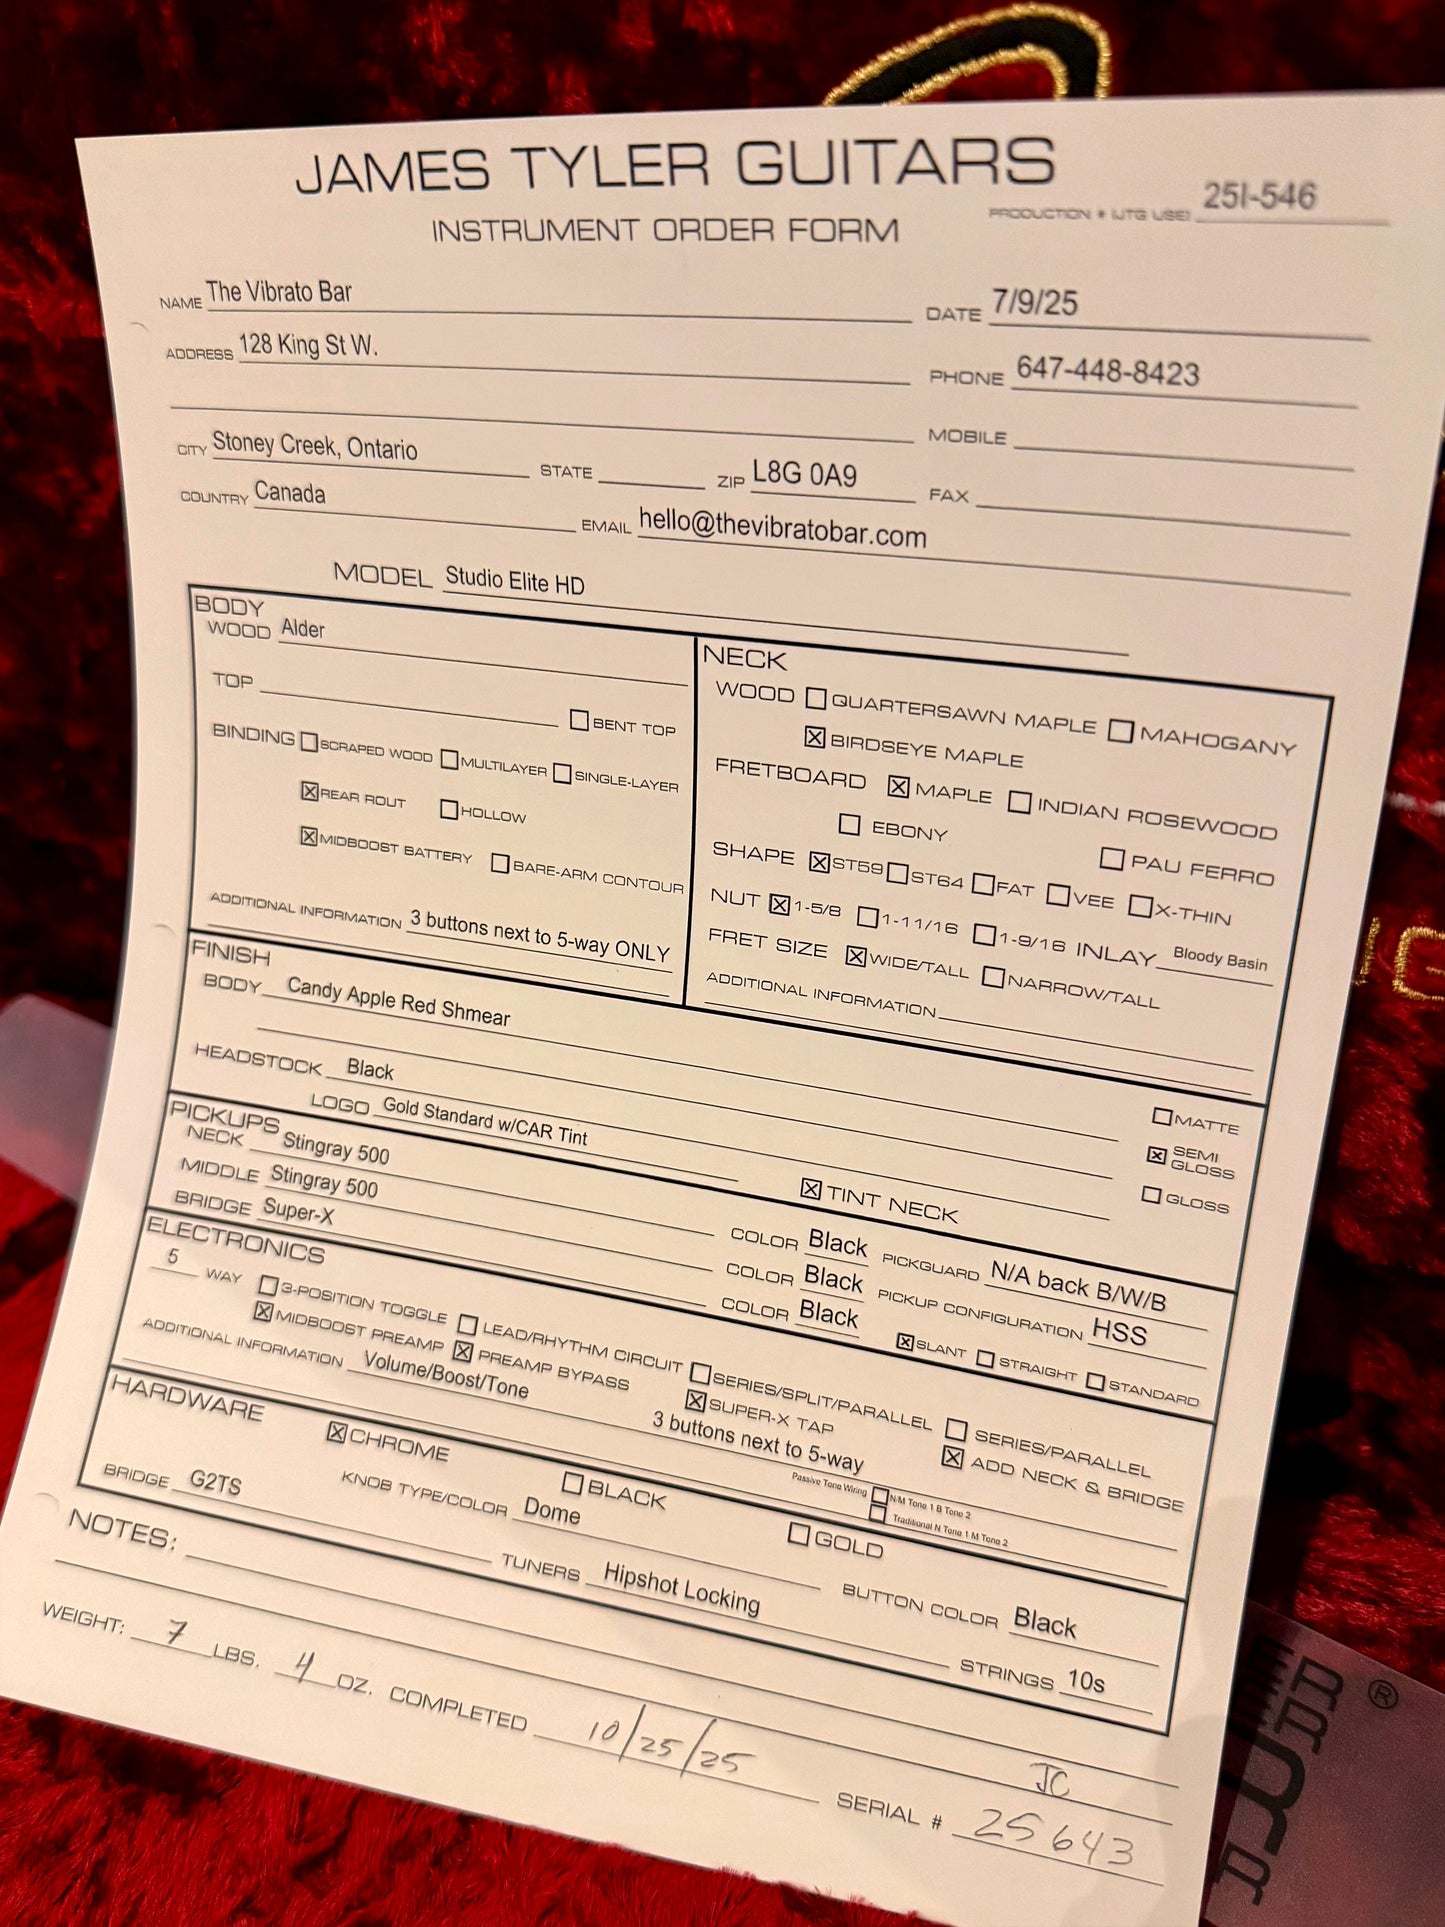 JAMES TYLER GUITARS
INSTRUMENT ORDER FORM
PRODUCTION # (JTG USE) 25I-546
NAME The Vibrato Bar DATE 7/9/25
ADDRESS 128 King St W. PHONE 647-448-8423
MOBILE
CITY Stoney Creek, Ontario STATE ZIP L8G 0A9 FAX
COUNTRY Canada EMAIL hello@thevibratobar.com
MODEL Studio Elite HD
BODY
WOOD Alder
TOP ☐ BENT TOP
BINDING ☐ SCRAPED WOOD ☐ MULTILAYER ☐ SINGLE-LAYER
☒ REAR ROUT ☐ HOLLOW
☒ MIDBOOST BATTERY ☐ BARE-ARM CONTOUR
ADDITIONAL INFORMATION 3 buttons next to 5-way ONLY
NECK
WOOD ☐ QUARTERSAWN MAPLE ☐ MAHOGANY
☒ BIRDSEYE MAPLE
FRETBOARD ☒ MAPLE ☐ INDIAN ROSEWOOD
☐ EBONY ☐ PAU FERRO
SHAPE ☒ ST59 ☐ ST64 ☐ FAT ☐ VEE ☐ X-THIN
NUT ☒ 1-5/8 ☐ 1-11/16 ☐ 1-9/16 INLAY Bloody Basin
FRET SIZE ☒ WIDE/TALL ☐ NARROW/TALL
ADDITIONAL INFORMATION
FINISH
BODY Candy Apple Red Shmear
HEADSTOCK Black
LOGO Gold Standard w/CAR Tint
☒ TINT NECK
☐ MATTE
☒ SEMI GLOSS
☐ GLOSS
PICKUPS
NECK Stingray 500 COLOR Black PICKGUARD N/A back B/W/B
MIDDLE Stingray 500 COLOR Black PICKUP CONFIGURATION HSS
BRIDGE Super-X COLOR Black ☒ SLANT ☐ STRAIGHT ☐ STANDARD
ELECTRONICS
5 WAY ☐ 3-POSITION TOGGLE ☐ LEAD/RHYTHM CIRCUIT ☐ SERIES/SPLIT/PARALLEL ☐ SERIES/PARALLEL
☒ MIDBOOST PREAMP ☒ PREAMP BYPASS ☒ SUPER-X TAP ☒ ADD NECK & BRIDGE
ADDITIONAL INFORMATION Volume/Boost/Tone 3 buttons next to 5-way
Passive Tone Wiring ☐ N/M Tone 1 B Tone 2
☐ Traditional N Tone 1 M Tone 2
HARDWARE
☒ CHROME ☐ BLACK ☐ GOLD
BRIDGE G2TS KNOB TYPE/COLOR Dome BUTTON COLOR Black
TUNERS Hipshot Locking STRINGS 10s
NOTES:
JC
WEIGHT: 7 LBS. 4 OZ. COMPLETED 10/25/25 SERIAL # 25643
®